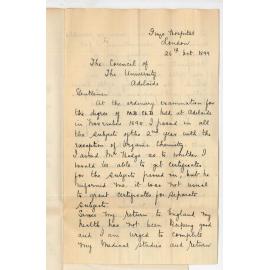 Guys Hospital
London
26th Oct. 1899
The Council of
The University
Adelaide
Gentlemen
At the ordinary examination for
the degree of MB Ch.B held at Adelaide
in November 1898 I passed in all
the subjects of the 2nd year with the
exception of Organic Chemistry.
I asked Mr Hodge as to whether I
would be able to get certificates
for the subjects passed in, but he
informed me it was not usual
to grant certificates for separate
subjects.
Since my return to England my
health has not been keeping good
and I am urged to complete
my Medical Studies and return